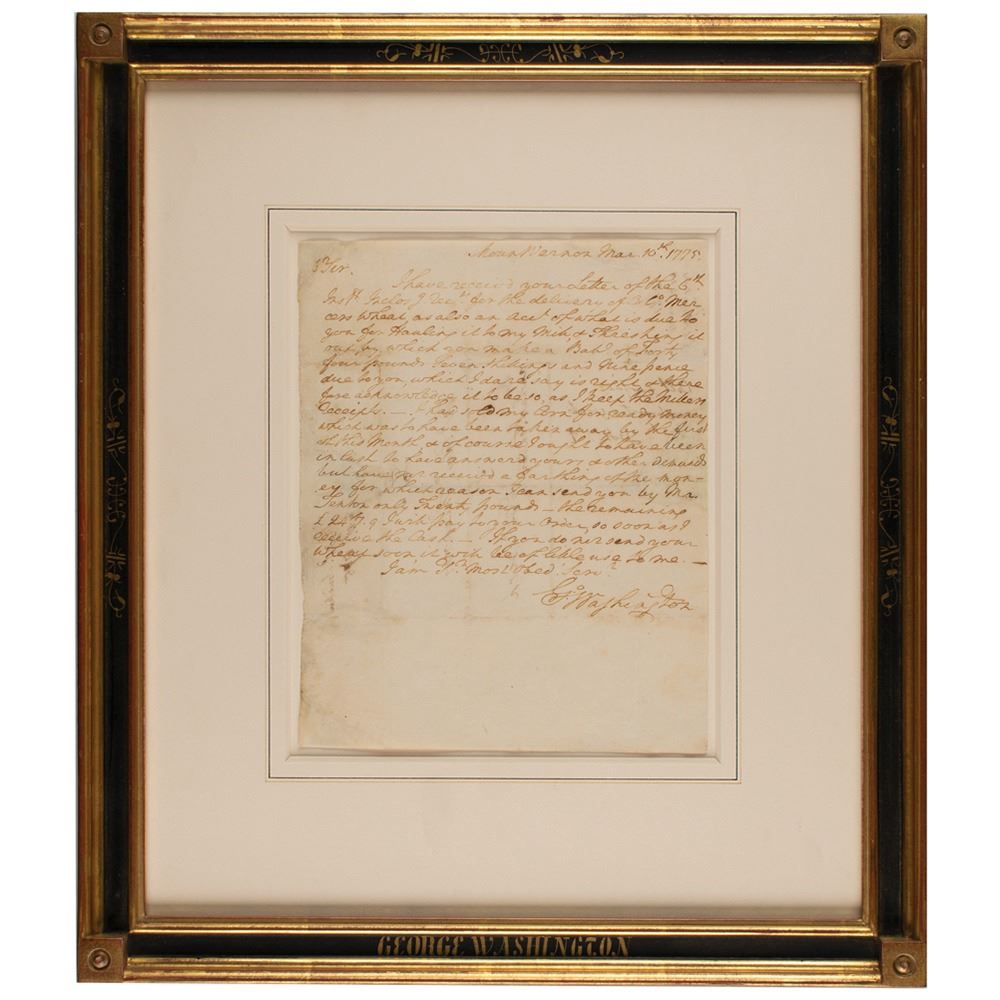 Mount Vernon Mar. 10th. 1775.
Sir.
I have receiv'd your Letter of the 6th
Instt. Inclosg Rect for the delivery of Co. Mer-
cers Wheat, as also an acct of what is due to
you for Hauling it to my Mill, & Threshing it
out, by which you make a Bale. of Forty
four pounds Seven Shillings and Nine pence
due to you, which I dare say is right & there
fore acknowledge it to be so, as I keep the Millers
receipts. — I had sold my Corn for ready money
which was to have been taken away by the first
of this Month & of course I ought to have been
in Cash to have answerd yours & other Demands
but have not received a farthing of the mon-
ey for which reason I can send you by Mr.
only Twenty pounds — the remaining
£24.7.9 I will pay to your Order, so soon as I
receive the Cash. — If you do not send your
Wheat soon it will be of little use to me. —
I am Yr. Most Obed. Servt
Go: Washington
GEORGE WASHINGTON